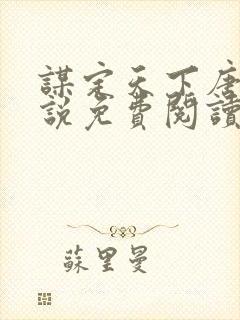 謀定天下唐
說免費閱讀
蘇里曼